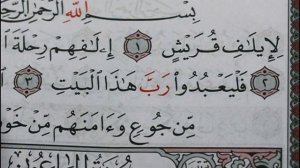 بِسْمِ ٱللَّهِ ٱلرَّحْمَٰنِ ٱلرَّحِيمِ
لِإِيلَٰفِ قُرَيْشٍ ١ إِۦلَٰفِهِمْ رِحْلَةَ
٢ فَلْيَعْبُدُوا۟ رَبَّ هَٰذَا ٱلْبَيْتِ ٣
مِّن جُوعٍ وَءَامَنَهُم مِّنْ خَوْ